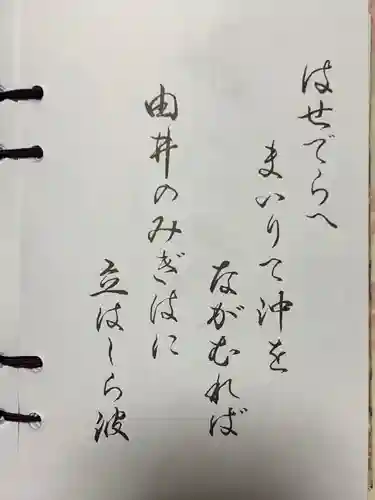 はせでらへ
まいりて沖を
ながむれば
由井のみぎはに
立はしら波